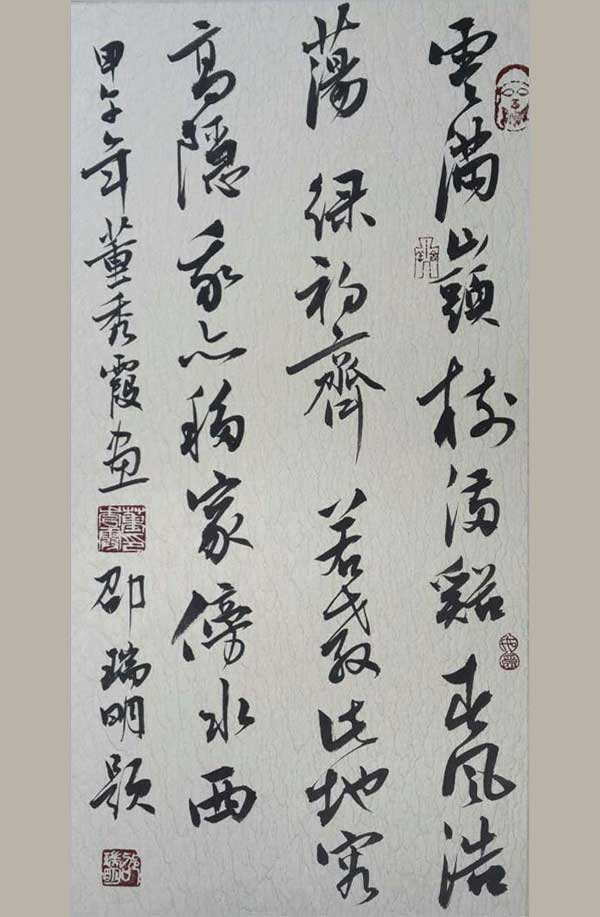 雲滿山頭樹滿谿春風浩
蕩綠初齊若教此地容
高隱我亦移家傍水西
甲午年董秀霞畫 邵瑞明題